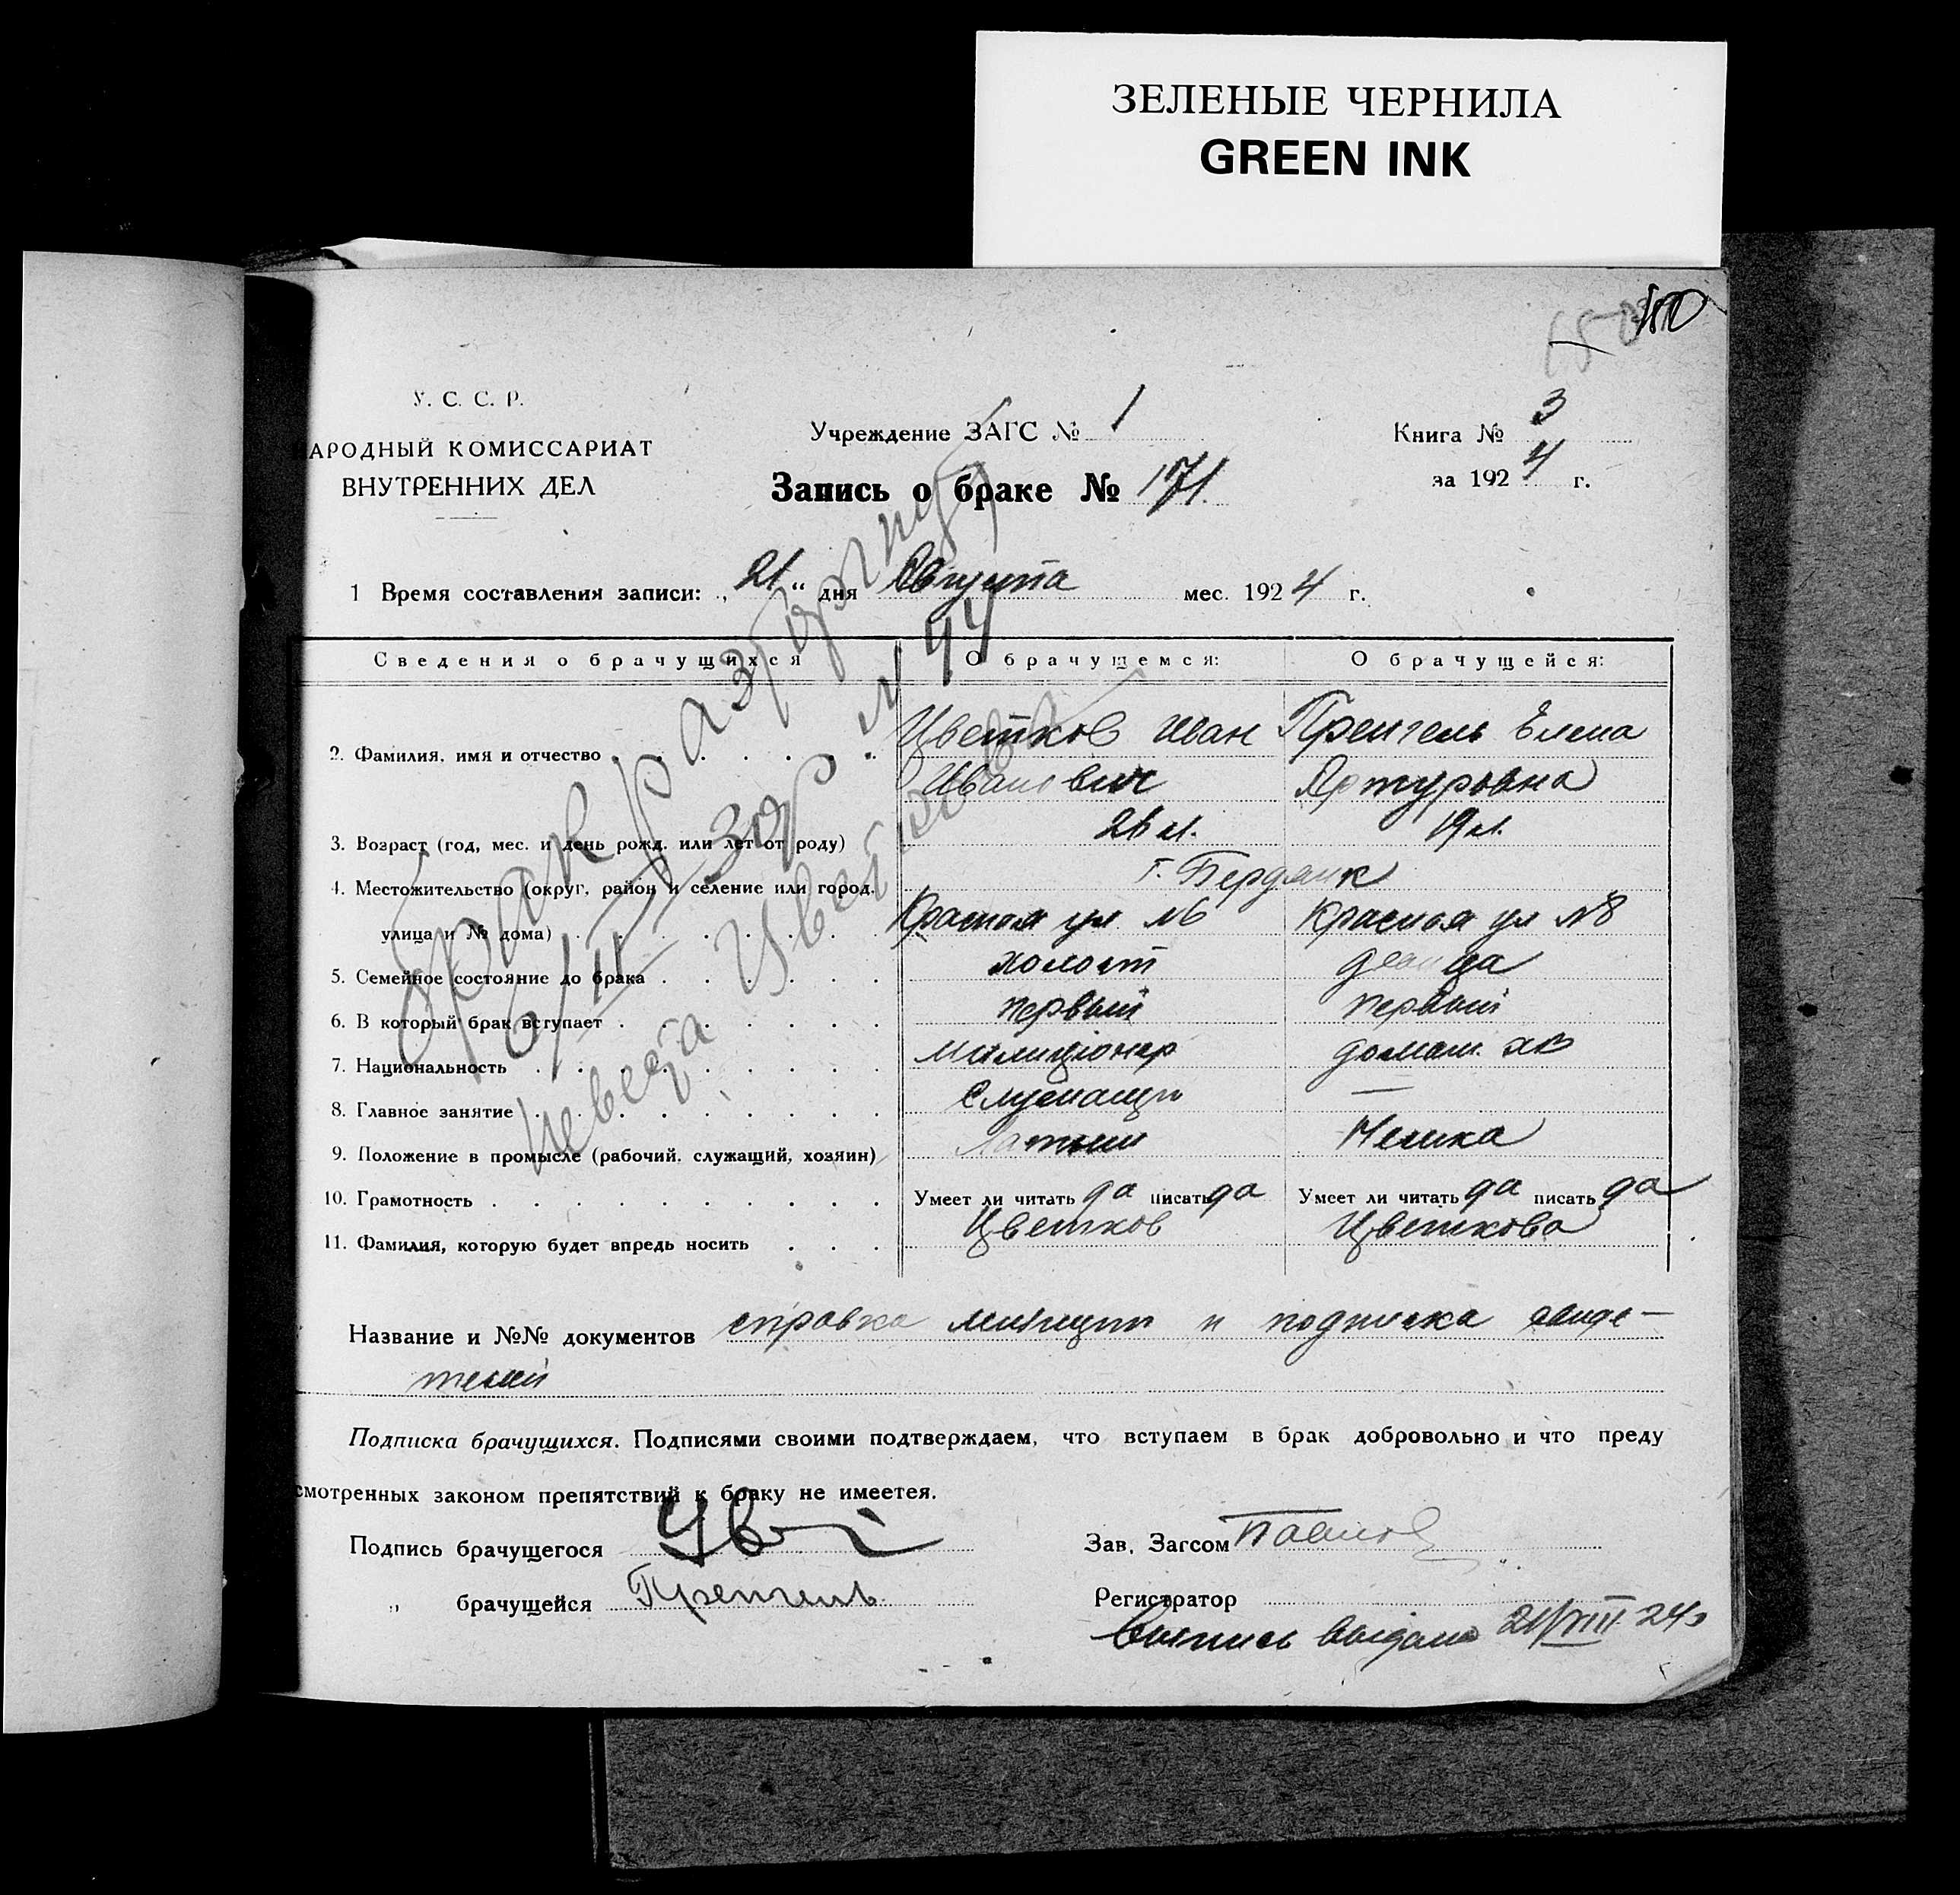 ЗЕЛЕНЫЕ ЧЕРНИЛА
GREEN INK
150
У. С. С. Р.
АРОДНЫЙ КОМИССАРИАТ
ВНУТРЕННИХ ДЕЛ
Учреждение ЗАГС № 1
Запись о браке № 171.
Книга № 3
за 1924 г.
1 Время составления записи: „21“ дня Августа мес. 1924 г.
Сведения о брачущихся О брачущемся: О брачущейся:
2. Фамилия, имя и отчество Цветков Иван Пренгель Елена
Иванович Артуровна
3. Возраст (год, мес. и день рожд. или лет от роду) 26 л. 19 л.
4. Местожительство (округ, район и селение или город. г. Бердянск
улица и № дома) Красная ул №6 Красная ул №8
5. Семейное состояние до брака холост девица
6. В который брак вступает первый первый
7. Национальность Милиционер домаш. хоз
8. Главное занятие Служащий —
9. Положение в промысле (рабочий, служащий, хозяин) Латыш Немка
10. Грамотность Умеет ли читать да писать да Умеет ли читать да писать да
11. Фамилия, которую будет впредь носить Цветков Цветкова
брак разторгнут
6/II 30 р. № 94
невеста Цветкова
Название и №№ документов справка милиции и подписка свиде-
телей
Подписка брачущихся. Подписями своими подтверждаем, что вступаем в брак добровольно и что преду
смотренных законом препятствий к браку не имеетея.
Подпись брачущегося Зав. Загсом
„ брачущейся Пренгель Регистратор
Выпись выдана 21/VIII 24 г